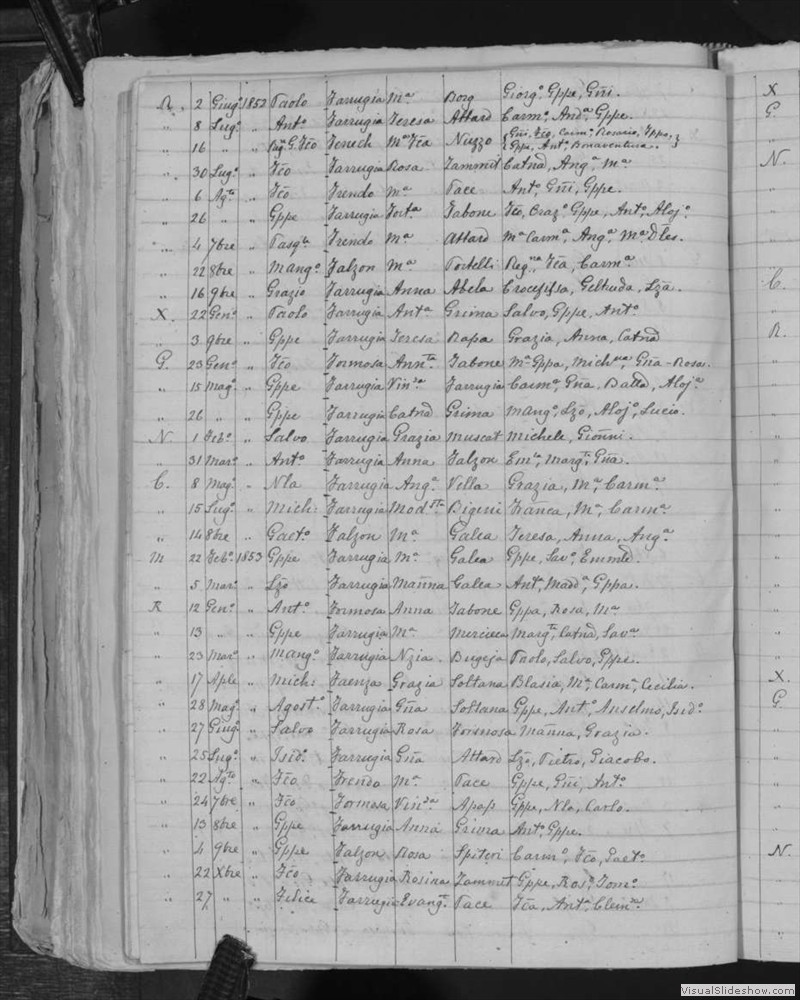 R. 2 Giug.o 1852 Paolo Farrugia M.a Borg Giorg.o Gppe, Gñi.
" 8 Lug.o " Ant.o Farrugia Teresa Attard Carm.o And.a Gppe.
" 16 " " G. Fco M.a Fca Nuzzo Gñi, Fco, Carm.o Rosario, Gppa, Gppe, Ant.o Bonaventura.
" 30 Lug.o " Fco Farrugia Rosa Zammit Catnã, Ang.a M.a
" 6 Ag.to " Fco Frendo M.a Pace Ant.o Gñi, Gppe.
" 26 " " Gppe Farrugia Fort.a Tabone Fco, Oraz.o Gppe, Ant.o Aloj.o
" 4 7bre " Pasq.le Frendo M.a Attard M.a Carm.a Ang.a M.a Dles.
" 22 8bre " Mang.o Falzon M.a Portelli Reg.na Fca, Carm.a
" 16 9bre " Grazio Farrugia Anna Abela Crocefissa, Geltruda, Lzã.
X. 22 Gen.o " Paolo Farrugia Ant.a Grima Salvo, Gppe, Ant.o
" 3 9bre " Gppe Farrugia Teresa Rapa Grazia, Anna, Catnã
G. 23 Gen.o " Fco Formosa Ann.ta Tabone M.a Gppa, Mich.na, Gña-Rosa.
" 15 Mag.o " Gppe Farrugia Vin.za Farrugia Carm.a Gña, Batta, Aloj.a
" 26 " " Gppe Farrugia Catnã Grima Mang.o Lzõ, Aloj.o Lucio.
N. 1 Feb.o " Salvo Farrugia Grazia Muscat Michele, Gioñni.
" 31 Mar.o " Ant.o Farrugia Anna Falzon Em.la Marg.ta Gña.
C. 8 Mag.o " Nla Farrugia Ang.a Vella Grazia, M.a Carm.a
" 15 Lug.o " Mich: Farrugia Mod.sta Bigeni Franca, M.a Carm.a
" 14 8bre " Gaet.o Falzon M.a Galea Teresa, Anna, Ang.a
M 22 Feb.o 1853 Gppe Farrugia M.a Galea Gppe, Sav.o Emmle.
" 5 Mar.o " Lzõ Farrugia Mañna Galea Ant.a Madd.a Gppa.
R 12 Gen.o " Ant.o Formosa Anna Tabone Gppa, Rosa, M.a
" 13 " " Gppe Farrugia M.a Mercieca Marg.ta Catnã, Sav.a
" 23 Mar.o " Mang.o Farrugia Nzia. Bugeja Paolo, Salvo, Gppe.
" 17 Aple " Mich: Faenza Grazia Soltana Blasia, M.a Carm.a Cecilia.
" 28 Mag.o " Agost.o Farrugia Gña Soltana Gppe, Ant.o Anselmo, Isid.o
" 27 Giug.o " Salvo Farrugia Rosa Formosa Mañna, Grazia.
" 25 Lug.o " Isid.o Farrugia Gña Attard Lzõ, Pietro, Giacobo.
" 22 Ag.to " Fco Frendo M.a Pace Gppe, Gñi, Ant.o
" 24 7bre " Fco Formosa Vin.za Apap Gppe, Nlo, Carlo.
" 13 8bre " Gppe Farrugia Anna Grima Ant.o Gppe.
" 4 9bre " Gppe Falzon Rosa Spiteri Carm.o Fco, Gaet.o
" 22 Xbre " Fco Farrugia Rosina Zammit Gppe, Ros.o Tom.o
" 27 " " Felice Farrugia Evang.ta Pace Fca, Ant.a Clem.za
X
G
"
N.
"
C.
R.
"
X.
G
N.
VisualSlideshow.com